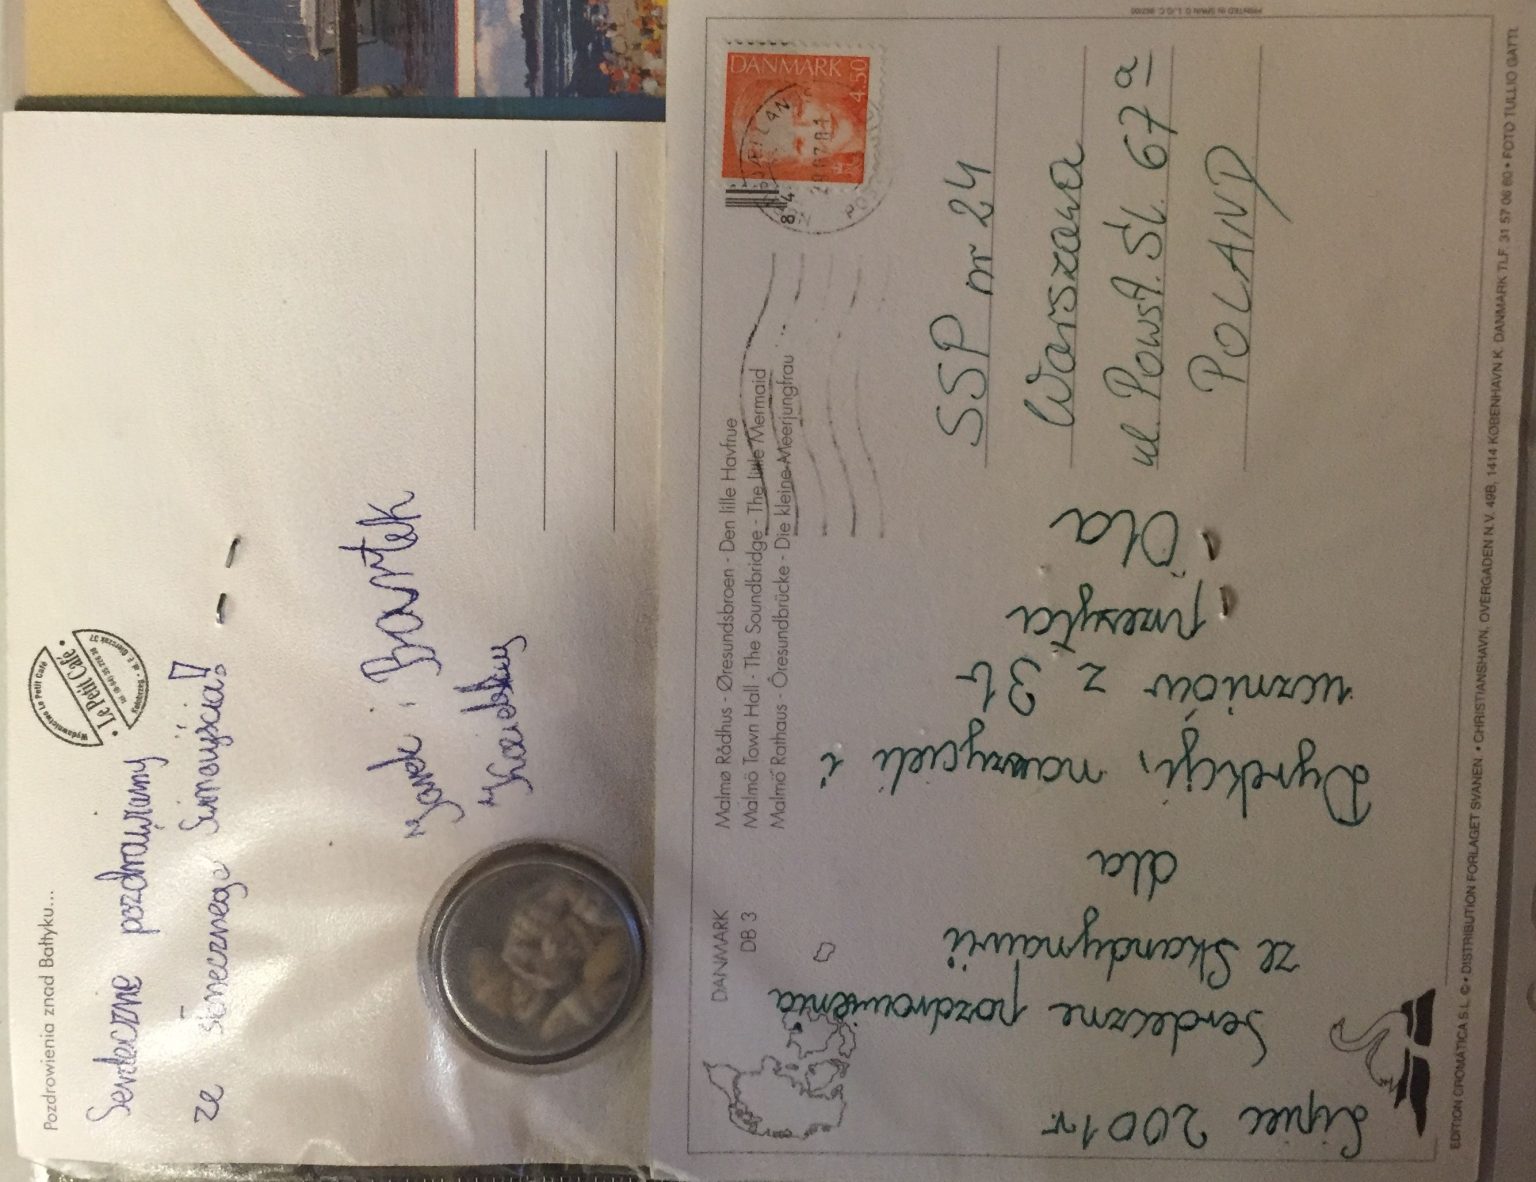 Pozdrowienia znad Bałtyku...
Wydawnictwo Le Petit Café
Le Petit Café
Serdecznie pozdrawiamy
ze słonecznego Świnoujścia!
Janek i Bartek
PRINTED IN SPAIN
DANMARK
4.50
DANMARK
DB 3
Malmø Rådhus - Øresundsbroen - Den lille Havfrue
Malmö Town Hall - The Soundbridge - The little Mermaid
Malmö Rathaus - Öresundbrücke - Die kleine Meerjungfrau
SSP nr 24
Warszawa
ul. Powst. Śl. 67a
POLAND
Lipiec 2001r.
Serdeczne pozdrowienia
ze Skandynawii
dla
Dyrekcji, nauczycieli i
uczniów z 3b
przesyła
Ola
EDITION CROMATICA S.L. © • DISTRIBUTION FORLAGET SVANEN • CHRISTIANSHAVN, OVERGADEN N.V. 49B, 1414 KØBENHAVN K. DANMARK TLF. 31 57 06 60 • FOTO TULLIO GATTI